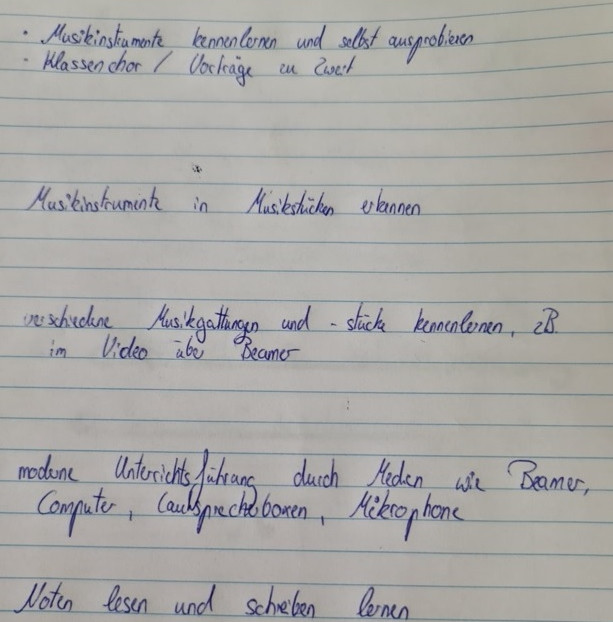 · Musikinstrumente kennenlernen und selbst ausprobieren
- Klassenchor / Vorträge zu Zweit
Musikinstrumente in Musikstücken erkennen
verschiedene Musikgattungen und -stücke kennenlernen, zB.
im Video über Beamer
moderne Unterrichtsführung durch Medien wie Beamer,
Computer, Lautsprecherboxen, Mikrophone
Noten lesen und schreiben lernen